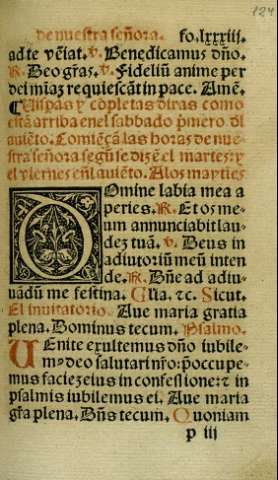 124
de nuestra señora. fo.lxxxiij.
ad te vẽiat. v. Benedicamus dño.
R. Deo grãs. v. Fideliũ anime per
dei miaʒ requiescãt in pace. Amẽ.
¶ Uispas y cõpletas diras como
estã arriba enel sabado pʳmero dl
auiẽto. Comiẽçã las horas de nue
stra señora segũ se dizẽ el martes: y
el viernes enl auiẽto. A los mayties
Domine labia mea a
peries. R. Et os me-
um annunciabit lau-
deʒ tuã. v. Deus in
adiutoriũ meũ inten
de. R. Dñe ad adiu-
uãdũ me festina. Glia. ⁊c. Sicut.
El inuitatorio. Aue maria gratia
plena. Dominus tecum. Psalmo.
UEnite exultemus dño iubile-
mꝰ deo salutari nro: p̄occupe-
mus facieʒ eius in confessione: ⁊ in
psalmis iubilemus ei. Aue maria
grã plena. Dñs tecum. Quoniam
p iij